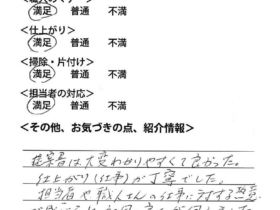 満足 普通 不満
<仕上がり>
満足 普通 不満
<掃除・片付け>
満足 普通 不満
<担当者の対応>
満足 普通 不満
<その他、お気づきの点、紹介情報>
提案書は大変わかりやすくて良かった。
仕上がり(仕事)が丁寧でした。
担当者や職人さんの仕事に対する熱意